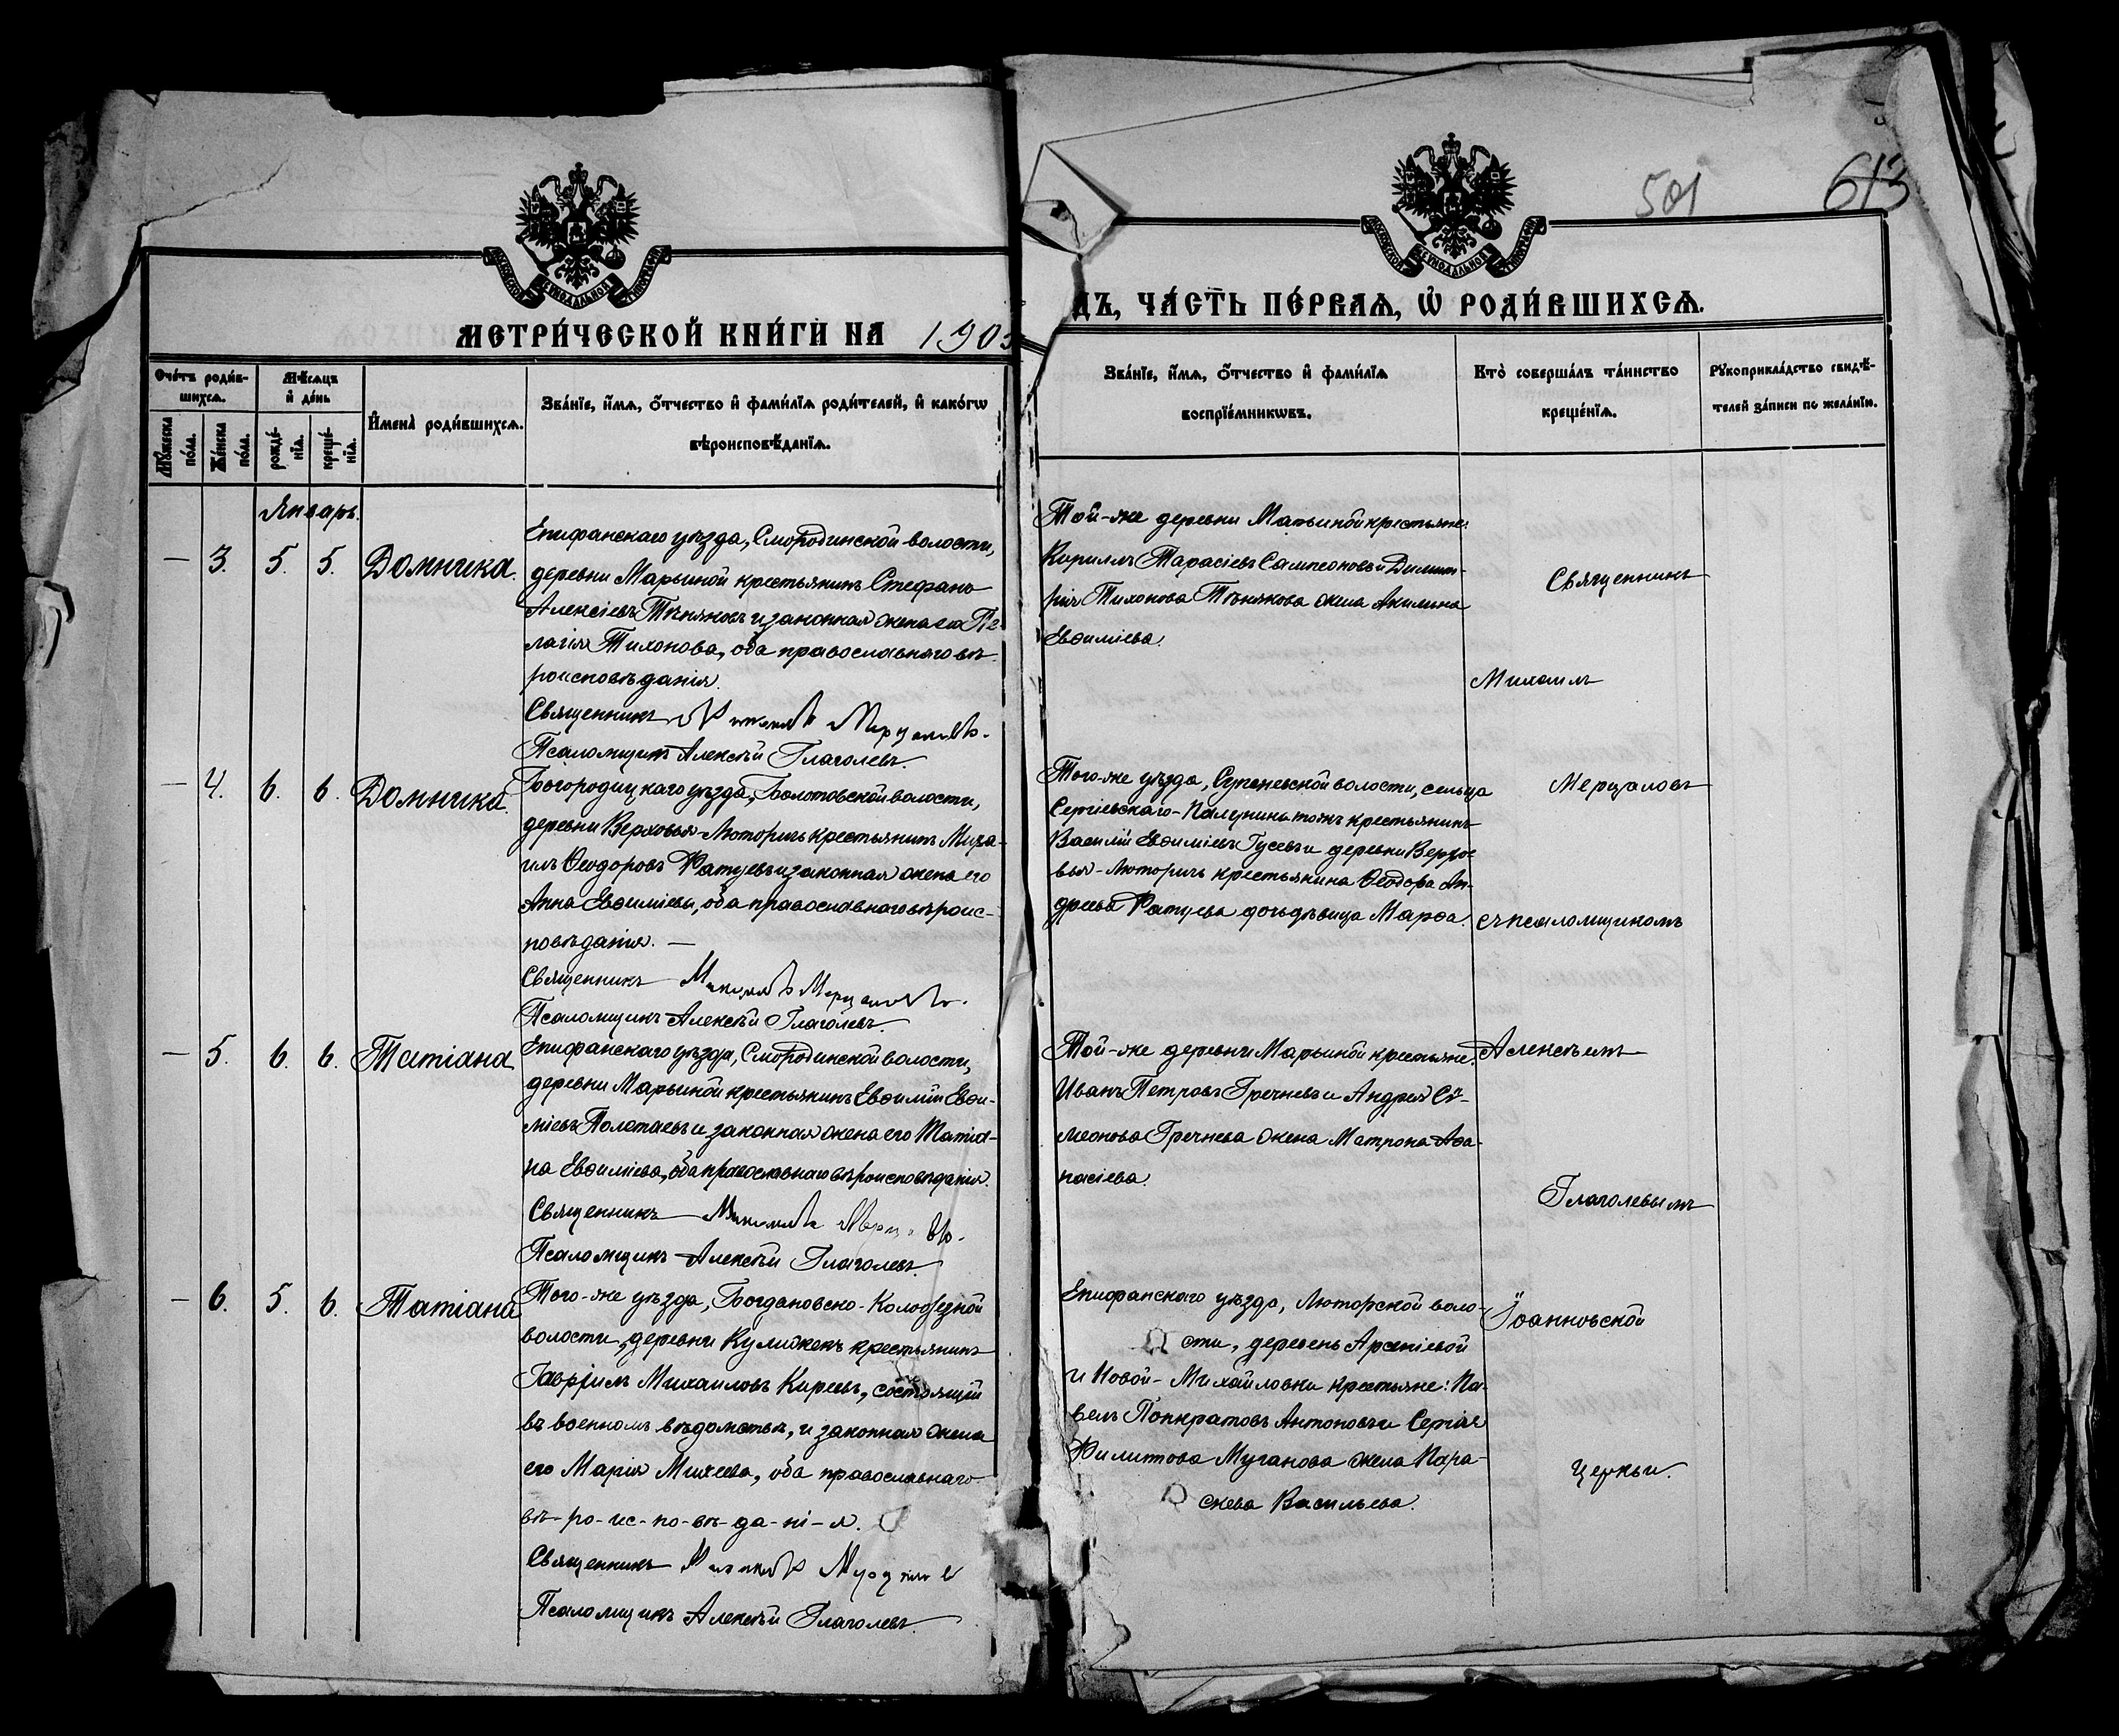 501
613
МОСКОВСКОЙ СѴНОДАЛЬНОЙ ТИПОГРАФІИ
МОСКОВСКОЙ СѴНОДАЛЬНОЙ ТИПОГРАФІИ
МЕТРИ́ЧЕСКОЙ КНИ́ГИ НА 190
ДЪ, ЧА́СТЬ ПЕ́РВАѦ, Ѡ҆ РОДИ́ВШИХСѦ.
Сче́тъ роди́в-
шихсѧ.
Мѣ́сѧцъ
и҆ де́нь
Мꙋ́жеска
по́ла.
Же́нска
по́ла.
рожде́-
нїѧ.
креще́-
нїѧ.
И҆мена̀ роди́вшихсѧ.
Зва́нїе, и҆́мѧ, ѻ҆́тчество и҆ фами́лїѧ роди́телей, и҆ како́гѡ
вѣроисповѣ́данїѧ.
Зва́нїе, и҆́мѧ, ѻ҆́тчество и҆ фами́лїѧ
воспрїе́мникѡвъ.
Кто̀ соверша́лъ та́инство
креще́нїѧ.
Рꙋкоприкла́дство свидѣ́-
телей за́писи по жела́нїю.
Январь.
— 3. 5. 5. Домника.
Епифанскаго уѣзда, Смородинской волости,
деревни Марьиной крестьянинъ Стефанъ
Алексіевъ Тѣняковъ и законная жена его Пе-
лагія Тихонова, оба православнаго вѣ-
роисповѣданія.
Священникъ Михаилъ Мерцаловъ.
Псаломщикъ Алексѣй Глаголевъ.
Той-же деревни Марьиной крестьяне:
Кириллъ Тарасіевъ Сампсоновъ и Димит-
рія Тихонова Тѣнякова жена Акилина
Евѳиміева.
— 4. 6. 6. Домника.
Богородицкаго уѣзда, Болотовской волости,
деревни Верховья-Люторичь крестьянинъ Миха-
илъ Ѳеодоровъ Фатуевъ и законная жена его
Анна Евѳиміева, оба православнаго вѣроис-
повѣданія. —
Священникъ Михаилъ Мерцаловъ.
Псаломщикъ Алексѣй Глаголевъ.
Того-же уѣзда, волости, сельца
Сергіевскаго- тожъ крестьянинъ
Василій Евѳиміевъ Гусевъ и деревни Верхо-
вья-Люторичь крестьянина Ѳеодора Ан-
дреева Фатуева дочь дѣвица Марѳа.
— 5. 6. 6. Татіана
Епифанскаго уѣзда, Смородинской волости,
деревни Марьиной крестьянинъ Евѳимій Евѳи-
міевъ Полетаевъ и законная жена его Татіа-
на Евѳиміева, оба православнаго вѣроисповѣданія.
Священникъ Михаилъ Мерцаловъ.
Псаломщикъ Алексѣй Глаголевъ.
Той-же деревни Марьиной крестьяне:
Иванъ Петровъ Гречневъ и Андрея Си-
меонова Гречнева жена Матрона Аѳа-
насіева.
— 6. 5. 6. Татіана
Того-же уѣзда, Богдановско-Колодезной
волости, деревни Куликекъ крестьянинъ
Гавріилъ Михаиловъ Киреевъ, состоящій
въ военномъ вѣдомствѣ, и законная жена
его Марія Михеева, оба православнаго
вѣ-ро-ис-по-вѣ-да-ні-я.
Священникъ Михаилъ Мерцаловъ
Псаломщикъ Алексѣй Глаголевъ.
Епифанскаго уѣзда, Люторской воло-
сти, деревень Арсеніевой
и Новой-Михайловки крестьяне: Па-
велъ Панкратовъ Антоновъ и Сергія
Филиппова Муганова жена Пара-
скева Васильева.
Священникъ
Михаилъ
Мерцаловъ
съ псаломщикомъ
Алексѣемъ
Глаголевымъ
Іоанновской
церкви.